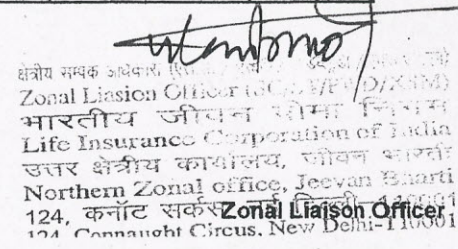 क्षेत्रीय सम्पर्क अधिकारी
Zonal Liasion Officer (SC/ST/PWD/XSM)
भारतीय जीवन बीमा निगम
Life Insurance Corporation of India
उत्तर क्षेत्रीय कार्यालय, जीवन भारती
Northern Zonal office, Jeevan Bharti
124, कनॉट सर्कस, नई दिल्ली-110001
Zonal Liaison Officer
124, Connaught Circus, New Delhi-110001